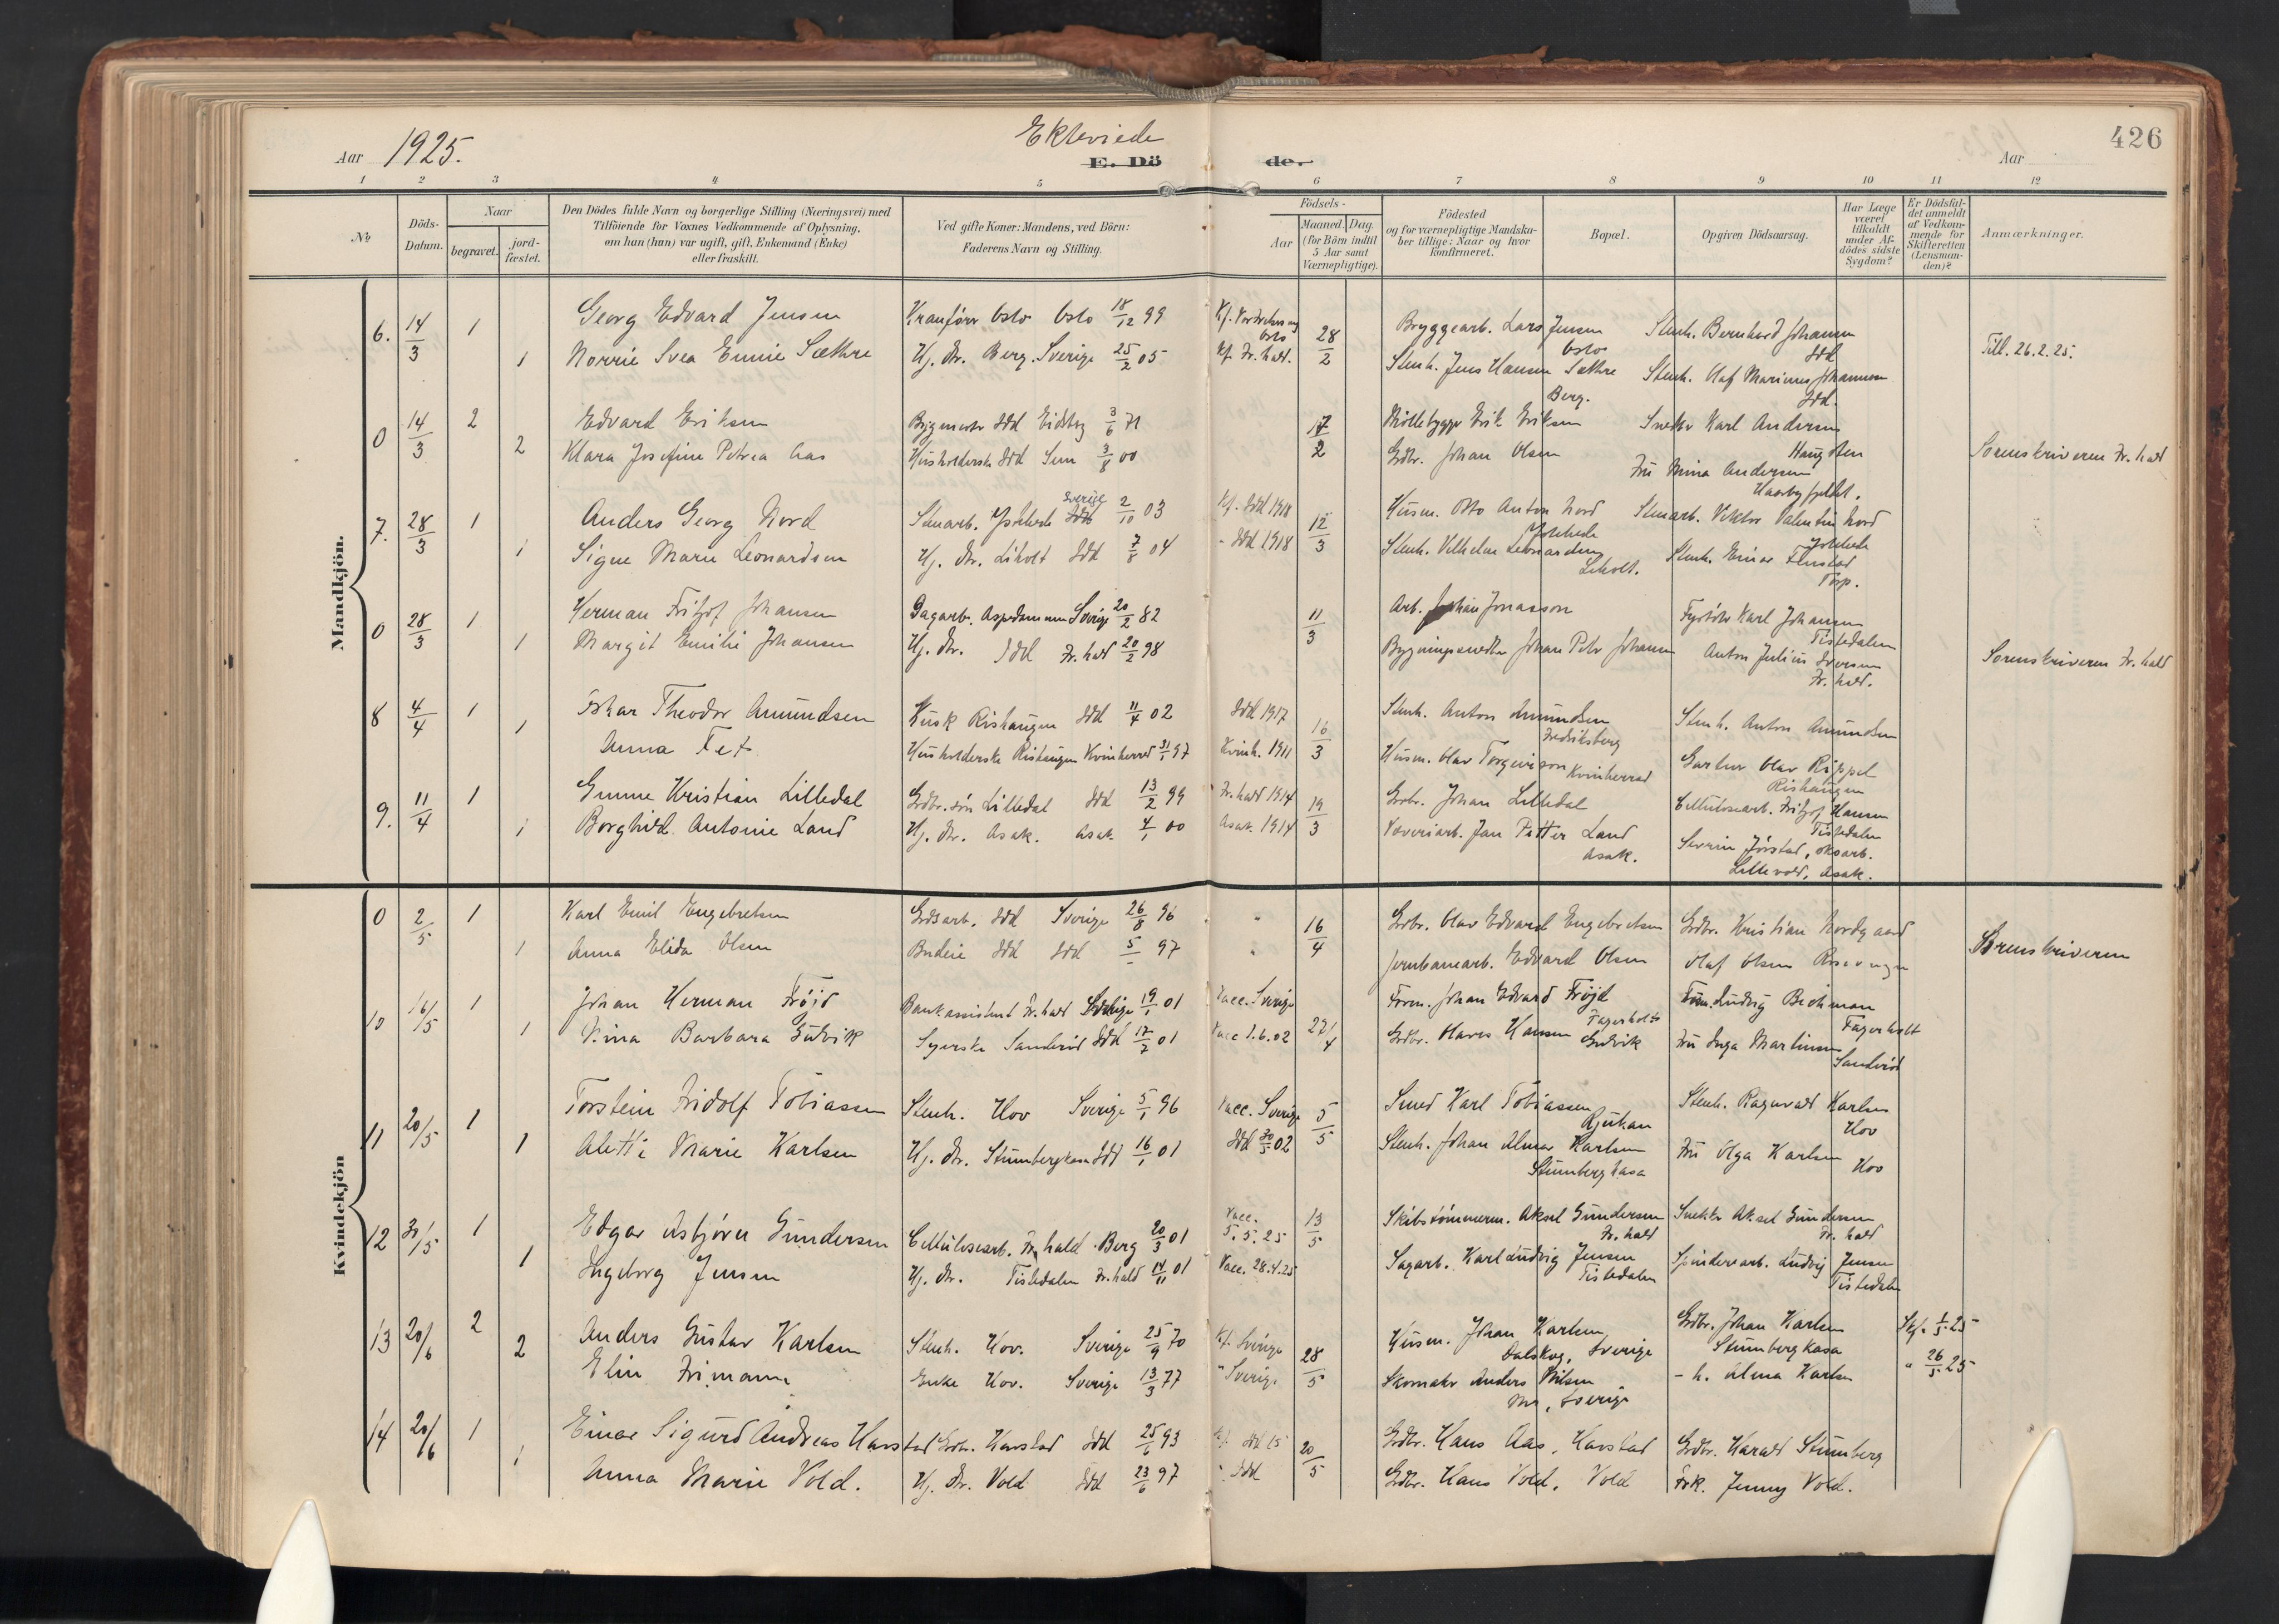 Aar 1925.
Ekteviede
E. Dö de.
Aar
426
1 2 3 4 5 6 7 8 9 10 11 12
№
Döds-Datum.
Naar
begravet.
jord-fæstet.
Den Dödes fulde Navn og borgerlige Stilling (Næringsvei) med
Tilföiende for Voxnes Vedkommende af Oplysning,
om han (hun) var ugift, gift, Enkemand (Enke)
eller fraskilt.
Ved gifte Koner: Mandens, ved Börn:
Faderens Navn og Stilling.
Födsels-
Aar
Maaned. Dag.
(for Börn indtil
5 Aar samt
Værnepligtige).
Födested
og for værnepligtige Mandska-
ber tillige: Naar og hvor
konfirmeret.
Bopæl.
Opgiven Dödsaarsag.
Har Læge
været
tilkaldt
under Af-
dödes sidste
Sygdom?
Er Dödsfal-
det anmeldt
af Vedkom-
mende for
Skifteretten
(Lensman-
den)?
Anmærkninger.
Mandkjön.
6. 14/3 1 Georg Edvard Jensen Kranförer Oslo Oslo 18/12 99 28/2 Bryggearb. Lars Jensen Oslo Stenh. Bernhard Johansen Idd
1 Norrie Svea Emmie Sæthre Hj. dtr. Berg. Sverige 25/2 05 Kf. Fr.hald. Stenh. Jens Hansen Sæthre Berg. Stenh. Olaf Marinus Johannesen Idd. Till. 26.2.25.
0 14/3 2 Edvard Eriksen Bygmestr Idd Eidsbg 3/6 71 17/2 Möllebygger Erik Eriksen Snedker Karl Andersen Haugsten
2 Klara Josefine Petrea Aas Husholderske Idd 3/8 00 Gdbr. Johan Olsen Fru Mina Andersen Sorenskriveren Fr.hald
7. 28/3 1 Anders Georg Nord Stenarb. Sverige 2/10 03 Kf. Idd 1918 12/3 Husm. Otto Anton Nord Stenarb. Viktor Valentin Nord
1 Signe Marie Leonardsen Hj. dtr. Liholt Idd 7/8 04 - Idd 1918 Stenh. Vilhelm Leonardsen Liholt. Stenh. Einar Flenstad Torp.
0 28/3 1 Herman Fritjof Johansen Dagarb. Aspedammen Sverige 20/2 82 11/3 Arb. Johan Jonasson Fyrböter Karl Johansen Tistedalen
1 Margit Emilie Johansen Hj. dtr. Idd Fr.hald 20/2 98 Bygningssnedker Johan Petr Johansen Anton Julius Iversen Fr.hald. Sorenskriveren Fr.hald
8 4/4 1 Oskar Theodor Amundsen Kusk Rishaugen Idd 11/4 02 Idd 1917 16/3 Stenh. Anton Amundsen Fredriksberg Stenh. Anton Amundsen
1 Anna Fet Husholderske Rishaugen Kvinherred 31/1 97 Kvinh. 1911 Husm. Olav Torgeirson Kvinherred Gartner Olav Rippel Rishaugen
9. 11/4 1 Gunne Kristian Lilledal Gdbr. sön Lilledal Idd 13/2 99 Fr.hald 1914 19/3 Gdbr. Johan Lilledal Cellulosearb. Fritjof Hansen Tistedalen
1 Borghild Antonie Land Hj. dtr. Asak. Asak. 4/1 00 Asak. 1914 Væveriarb. Jan Petter Land Asak. Severin Jörstad, Lillevold, Asak.
Kvindekjön
0 2/5 1 Karl Emil Engebretsen Gdsarb. Idd Sverige 26/8 96 " 16/4 Gdbr. Olav Edvard Engebretsen Gdbr. Kristian Nordgaard
1 Anna Elida Olsen Budeie Idd Idd 97 " Jernbanearb. Edvard Olsen Olaf Olsen Sörenskriveren
10 16/5 1 Johan Herman Fröjd Bankassistent Fr.hald Sverige 19/1 01 Vacc. Sverige 27/4 Form. Johan Edvard Fröjd Fagerholt Form. Ludvig Bichman Fagerholt
1 Nina Barbara Gudvik Syerske Sanderöd Idd 17/7 01 Vacc 1.6.02 Gdbr. Hans Hansen Gudvik Fru Inga Martinsen Sanderöd
11 20/5 1 Torstein Fridolf Tobiassen Stenh. Hov Sverige 5/1 96 Vacc. Sverige 5/5 Smed Karl Tobiassen Rjukan Stenh. Ragnvald Karlsen Hov
1 Alette Marie Karlsen Hj. dtr. Stumbergkasa Idd 16/1 01 Idd 30/5 02 Stenh. Johan Almar Karlsen Stumbergkasa Fru Olga Karlsen Hov
12 30/5 1 Edgar Asbjörn Gundersen Cellulosearb. Fr.hald. Berg 20/3 01 Vacc. 5.5.25 13/5 Skibstömmerm. Aksel Gundersen Fr.hald Snekker Aksel Gundersen Fr.hald
1 Ingeborg Jensen Hj. dtr. Tistedalen Fr.hald 14/11 01 Vacc. 28.4.25 Sagarb. Karl Ludvig Jensen Tistedalen Spinderearb. Ludvig Jensen Tistedalen
13 20/6 2 Anders Gustav Karlsen Stenh. Hov. Sverige 25/9 70 Kf. Sverige 28/5 Husm. Johan Karlsen Dalskog, Sverige Gdbr. Johan Karlsen Stumbergkasa Skf. 1/5 25
2 Elin Frimann Enke Hov. Sverige 13/3 77 " Sverige Skomaker Anders Nilsen Sverige - h. Alma Karlsen " 26/5 25
14 20/6 1 Einar Sigurd Andreas Havstad Gdbr. Havstad Idd 25/1 93 20/5 Gdbr. Hans Aas, Havstad Gdbr. Harald Stumberg
1 Anna Marie Vold. Hj. dtr. Vold Idd 23/6 97 " Idd Gdbr. Hans Vold, Vold Frk. Jenny Vold.